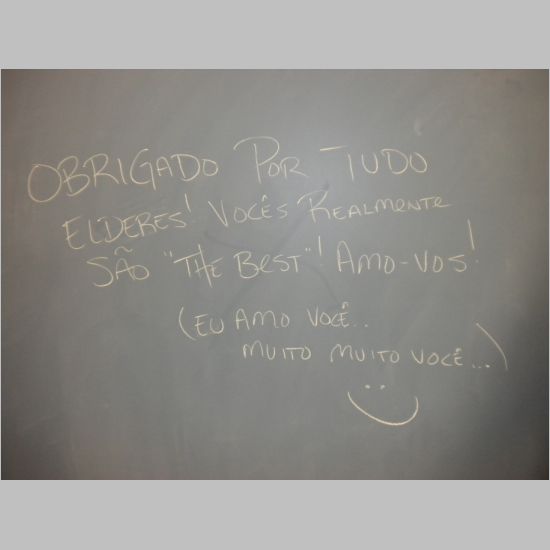 OBRIGADO POR TUDO
ELDERES! VOCÊS REALMENTE
SÃO "THE BEST"! AMO-VOS!
(EU AMO VOCÊ..
MUITO MUITO VOCÊ...)